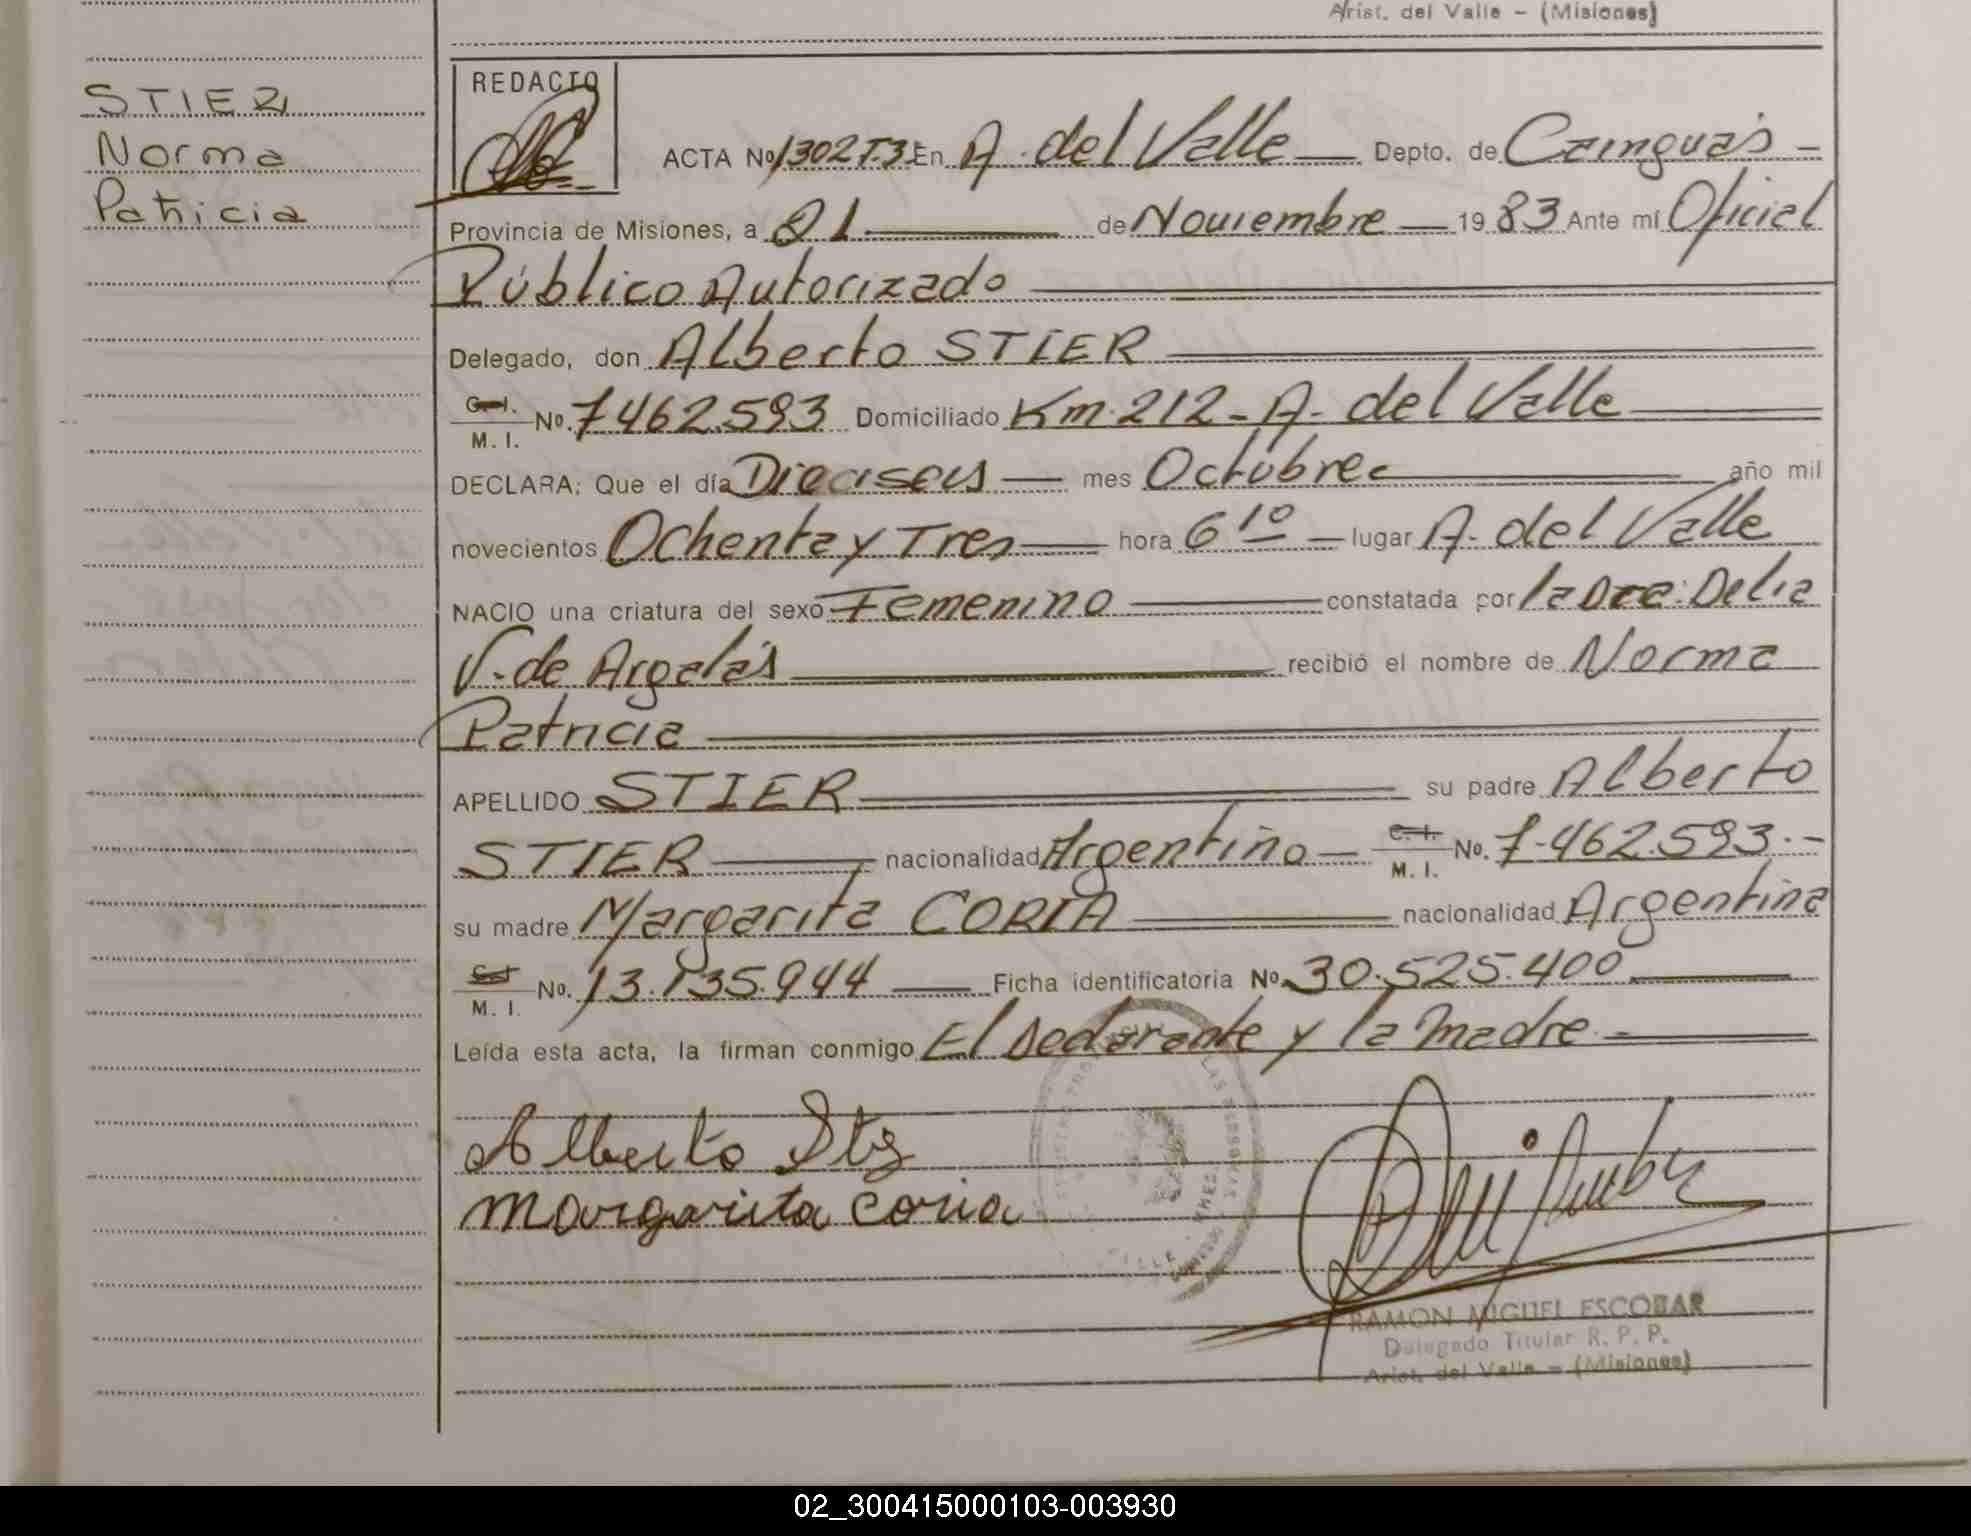 Arist. del Valle - (Misiones)
STIER
Norma
Patricia
REDACTO
ACTA Nº 1302 T.3 En A. del Valle Depto. de Cainguás
Provincia de Misiones, a 21 de Noviembre 1983 Ante mí Oficial
Público Autorizado
Delegado, don Alberto STIER
C. I. M. I. Nº. 7462.593 Domiciliado Km. 212 - A. del Valle
DECLARA: Que el día Dieciseis mes Octubre año mil
novecientos Ochenta y Tres hora 6 10 lugar A. del Valle
NACIO una criatura del sexo Femenino constatada por la Dra: Delia
V. de Argelás recibió el nombre de Norma
Patricia
APELLIDO STIER su padre Alberto
STIER nacionalidad Argentino C. I. M. I. Nº. 7.462.593.-
su madre Margarita CORIA nacionalidad Argentina
C. I. M. I. Nº. 13.135.944 Ficha identificatoria Nº 30.525.400
Leída esta acta, la firman conmigo El declarante y la madre.-
Alberto
Margarita Coria
RAMON MIGUEL ESCOBAR
Delegado Titular R. P. P.
Arist. del Valle - (Misiones)
02_300415000103-003930